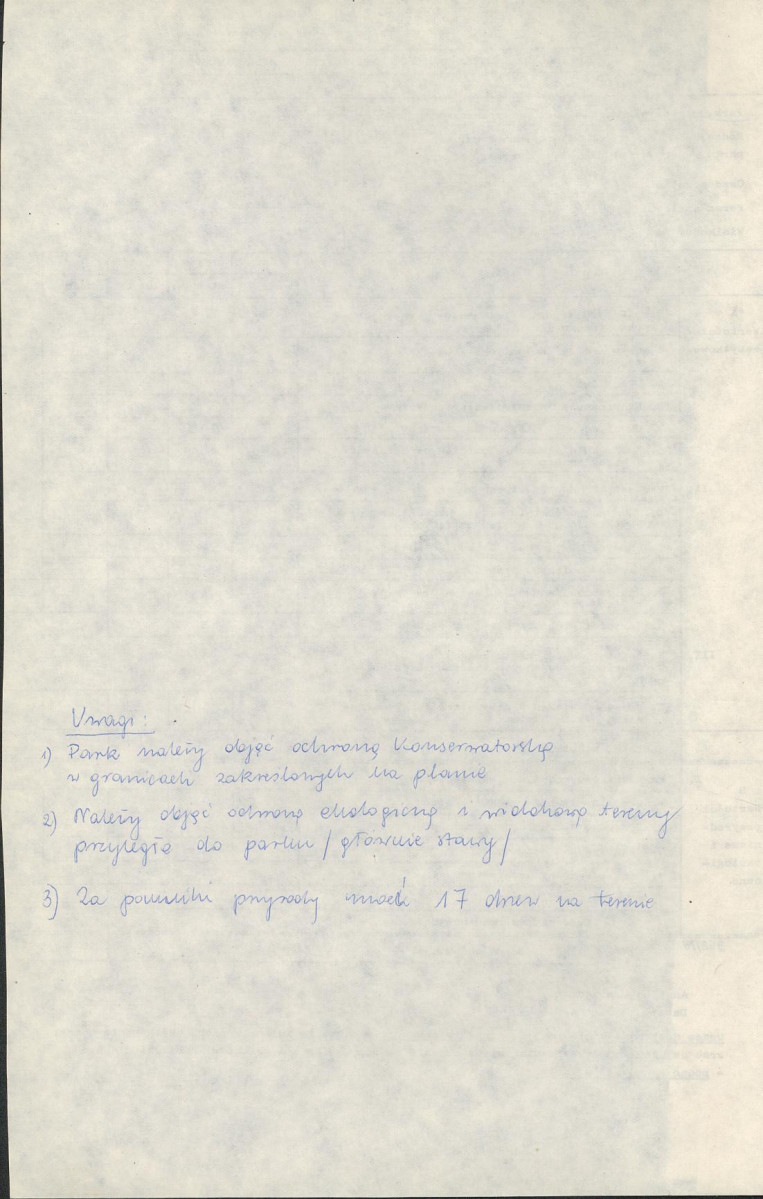 Uwagi:
1) Park należy objąć ochroną Konserwatorską
w granicach zakreślonych na planie
2) Należy objąć ochroną ekologiczną i widokową tereny
przyległe do parku / głównie stawy /
3) Za pomniki przyrody 17 drzew na terenie